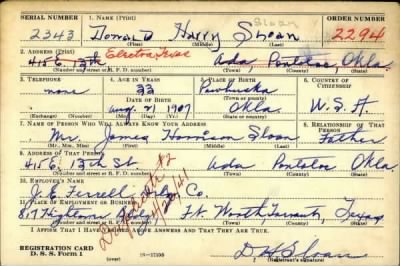 SERIAL NUMBER 1. NAME (Print) ORDER NUMBER
Sloan
2343 Donald Harry Sloan 2294
(First) (Middle) (Last)
2. ADDRESS (Print) Electra, Texas
415 E 13th Ada, Pontotoc Okla.
(Number and street or R. F. D. number) (Town) (County) (State)
3. TELEPHONE 4. AGE IN YEARS 5. PLACE OF BIRTH 6. COUNTRY OF CITIZENSHIP
none 33 Pawhuska
DATE OF BIRTH (Town or county)
Aug. 21 1907 Okla. U.S.A.
(Exchange) (Number) (Mo.) (Day) (Yr.) (State or country)
7. NAME OF PERSON WHO WILL ALWAYS KNOW YOUR ADDRESS 8. RELATIONSHIP OF THAT PERSON
Mr. James Harrison Sloan Father
(Mr., Mrs., Miss) (First) (Middle) (Last)
9. ADDRESS OF THAT PERSON
415 E. 13th St. Ada Pontotoc Okla.
(Number and street or R. F. D. number) (Town) (County) (State)
10. EMPLOYER'S NAME
J. E. Ferrell Drlg. Co.
11. PLACE OF EMPLOYMENT OR BUSINESS
817 Ft. Worth Tarrant, Texas
(Number and street or R. F. D. number) (Town) (County) (State)
I AFFIRM THAT I HAVE VERIFIED ABOVE ANSWERS AND THAT THEY ARE TRUE.
REGISTRATION CARD
D. S. S. Form 1 D H Sloan
(Registrant's signature)